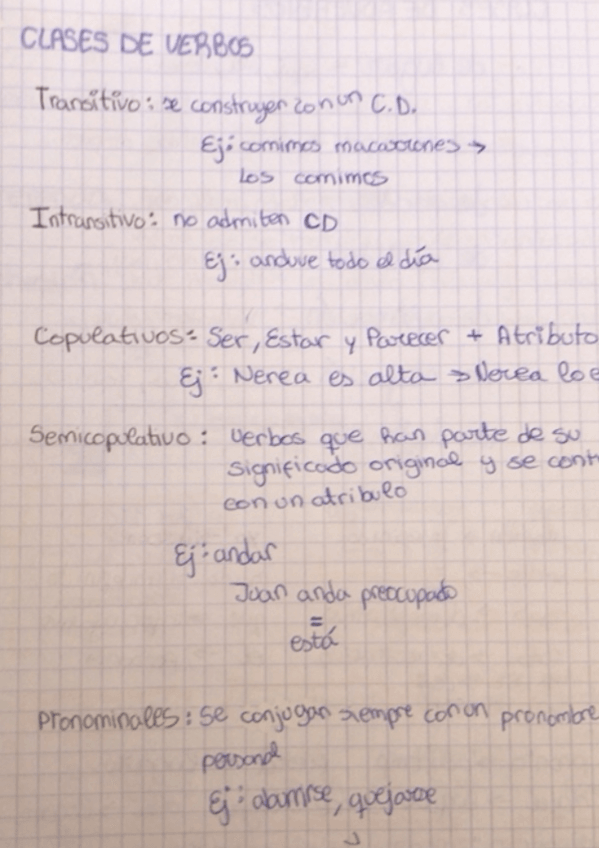 CLASES DE VERBOS
Transitivo: se construyen con un C.D.
Ej: comimos macarrones →
los comimos
Intransitivo: no admiten CD
Ej: anduve todo el día
Copulativos: Ser, Estar y Parecer + Atributo
Ej: Nerea es alta → Nerea lo e
Semicopulativo: verbos que han parte de su
significado original y se
con un atributo
Ej: andar
Juan anda preocupado
=
está
Pronominales: Se conjugan siempre con un pronombre
personal
Ej: aburrirse, quejarse